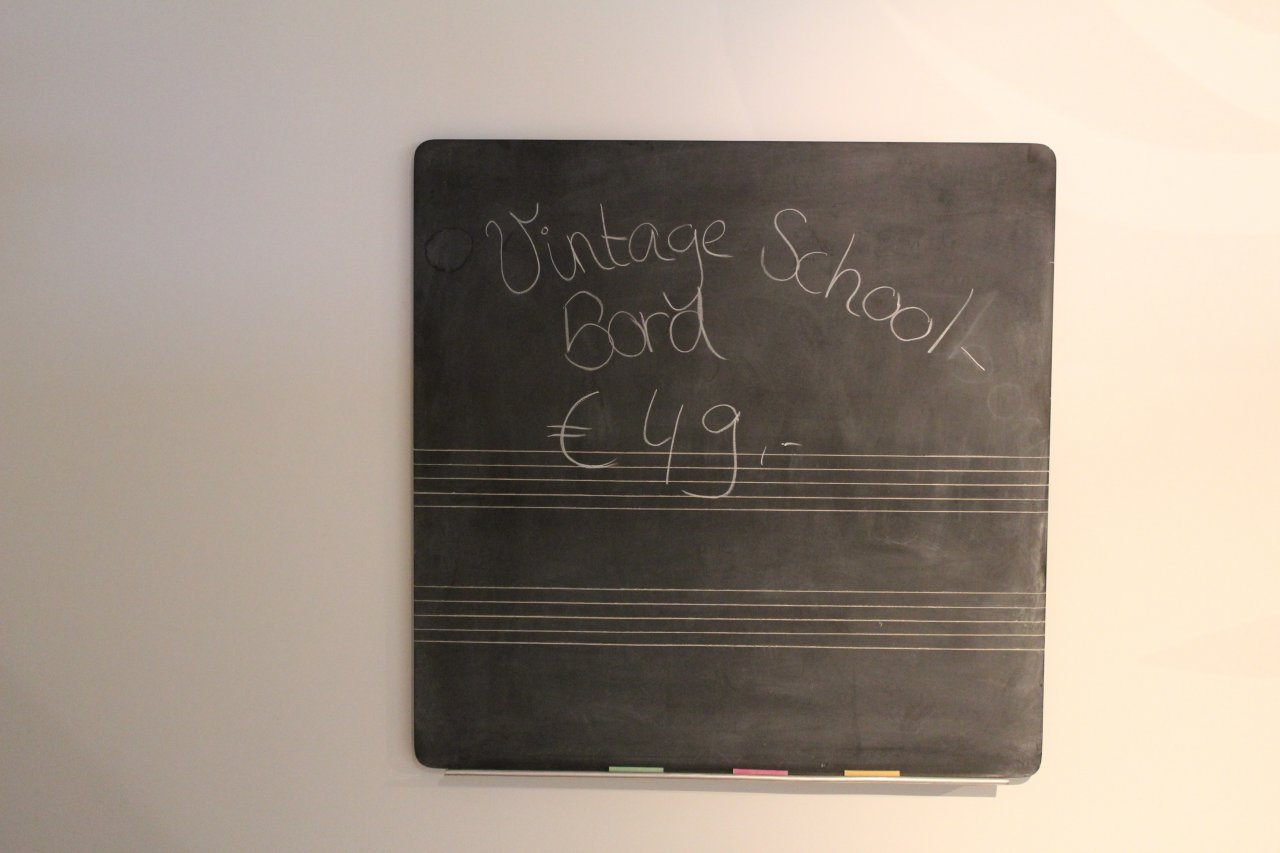 Vintage School-
Bord
€ 49,-